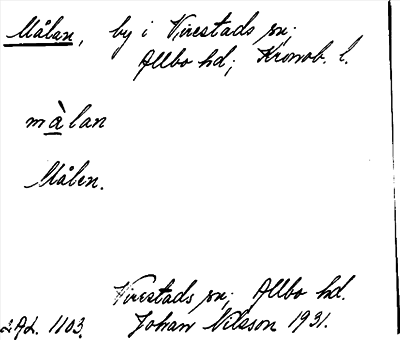 Målan, by i Virestads sn;
Allbo hd; Kronob. l.
màlan
Målen.
Virestads sn; Allbo hd.
Johan Nilsson 1931.
2 Af. 1103.